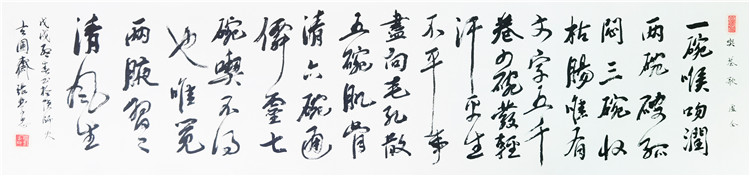 茶歌 卢仝
一碗喉吻潤
两碗破孤
悶三碗收
枯腸惟有
文字五千
卷四碗發輕
汗平生
不平事
盡向毛孔散
五碗肌骨
清六碗通
僊靈七
碗喫不得
也唯覺
两腋習〻
清風生
戊戌